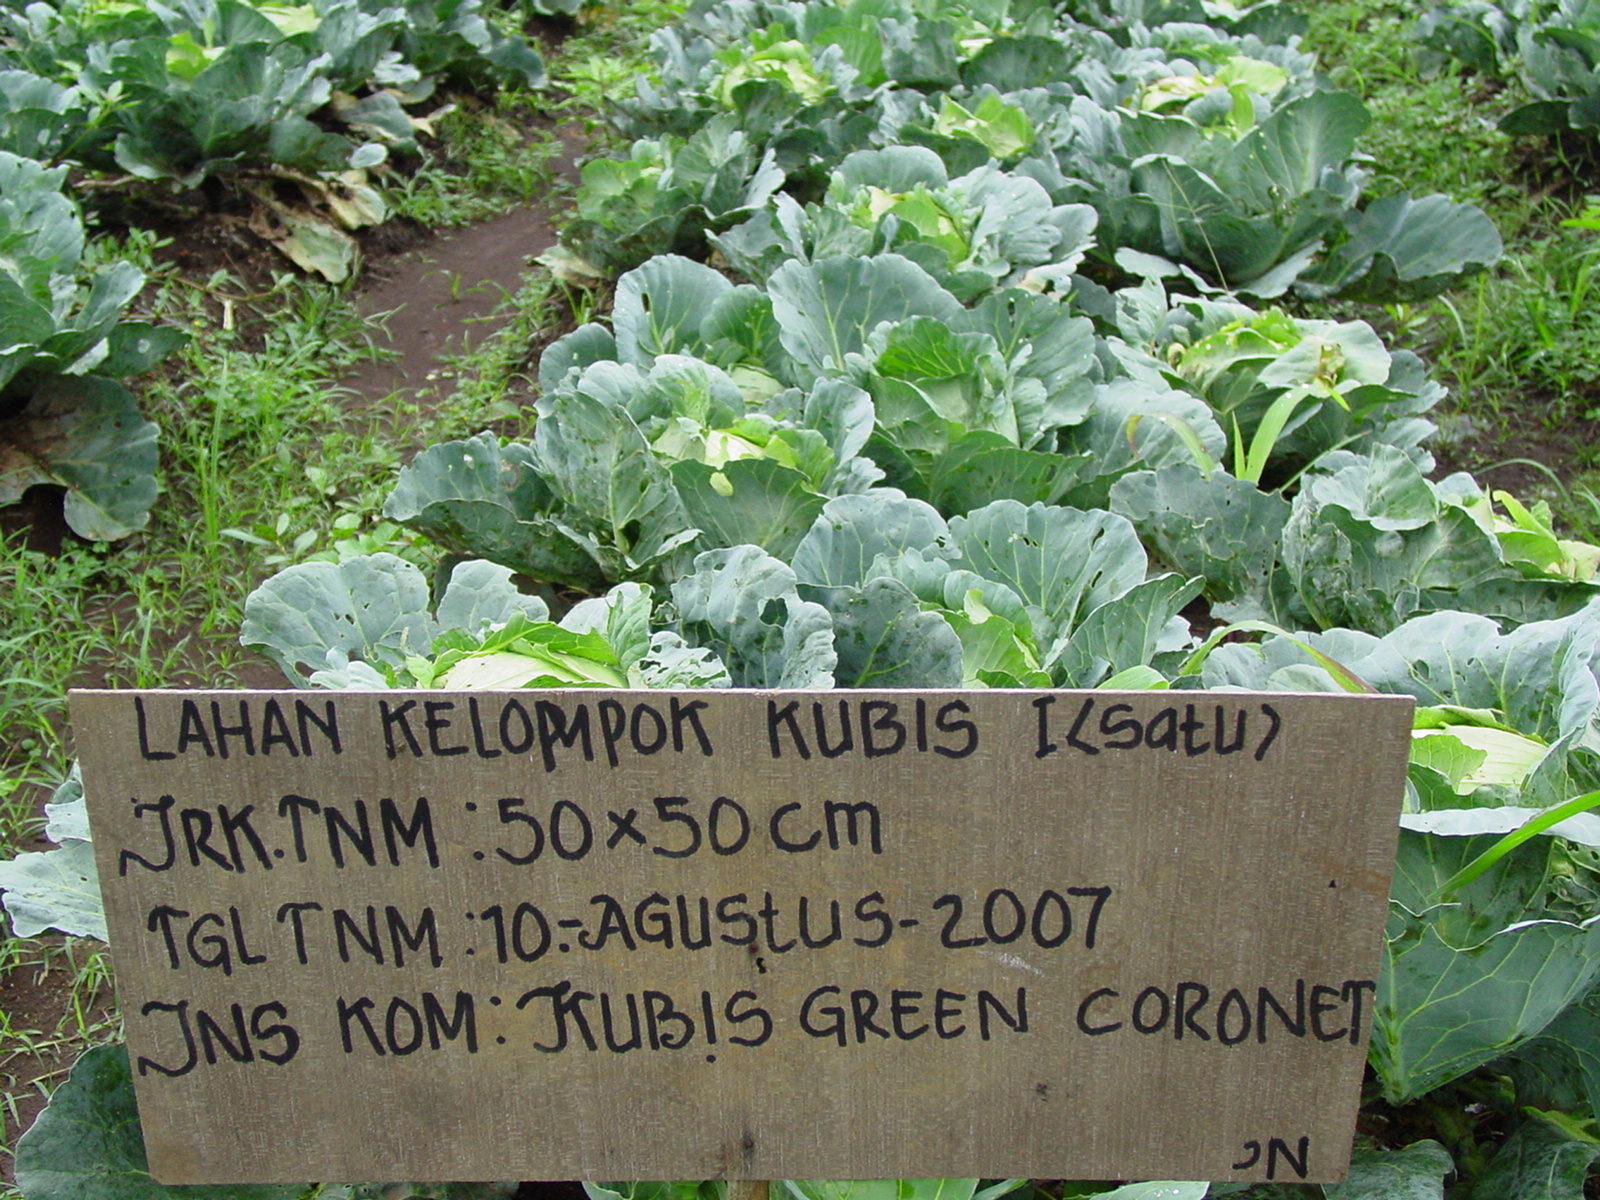 LAHAN KELOMPOK KUBIS I(Satu)
JRK.TNM : 50x50 cm
TGL TNM : 10-AGUStUS-2007
JNS KOM : KUBIS GREEN CORONET